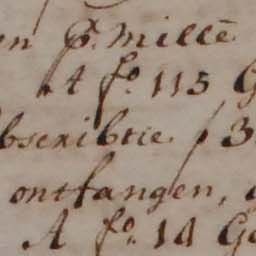 en p. mille
A fo. 115 G
bscribtie / 3
ontfangen,
A fo. 14 Ge